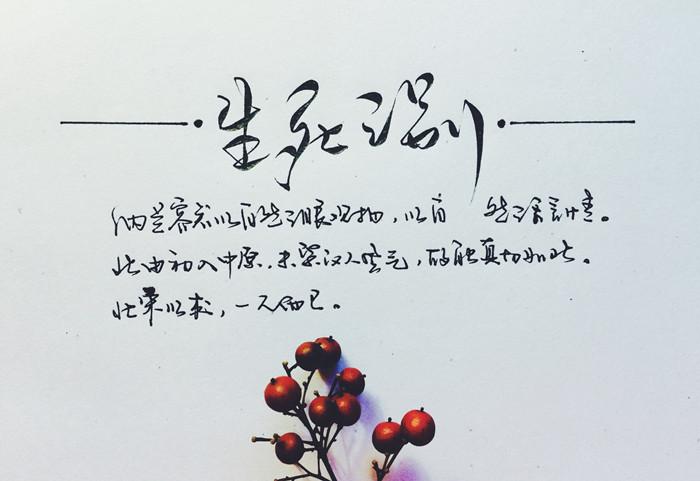 生死之别
纳兰容若以自然之眼观物，以自 然之舌言情。
此由初入中原，未染汉人风气，故能真切如此。
北宋以来，一人而已。